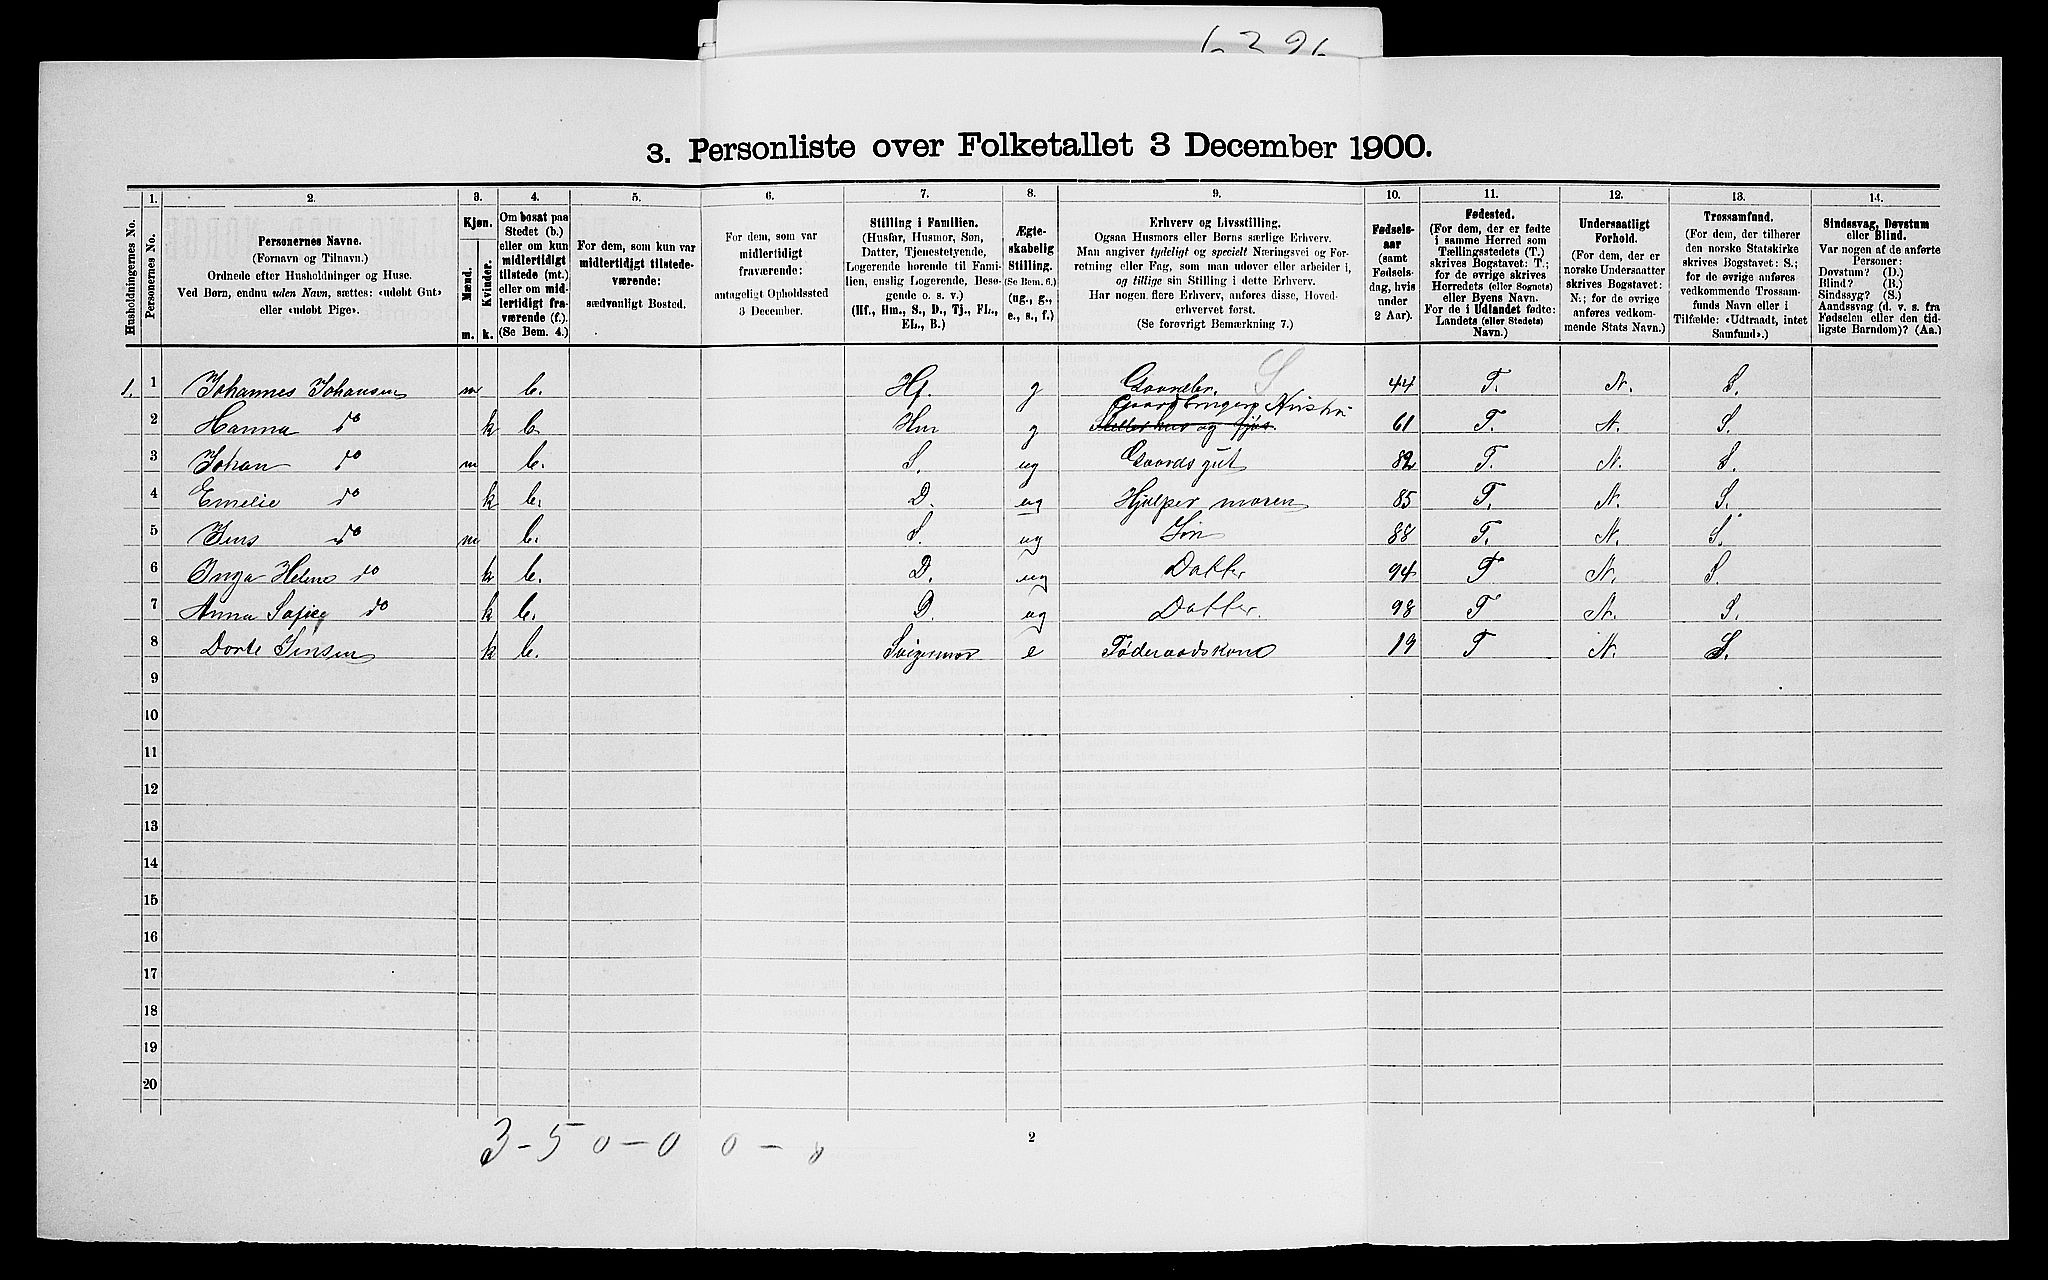 3. Personliste over Folketallet 3 December 1900.
1. 2. 3. 4. 5. 6. 7. 8. 9. 10. 11. 12. 13. 14.
Husholdningernes No.
Personernes No.
Personernes Navne.
(Fornavn og Tilnavn.)
Ordnede efter Husholdninger og Huse.
Ved Børn, endnu uden Navn, sættes: «udøbt Gut»
eller «udøbt Pige».
Kjøn.
Mænd.
Kvinder.
m. k.
Om bosat paa
Stedet (b.)
eller om kun
midlertidigt
tilstede (mt.)
eller om mid-
lertidigt fra-
værende (f.).
(Se Bem. 4.)
For dem, som kun var
midlertidigt tilstede-
værende:
sædvanligt Bosted.
For dem, som var
midlertidigt
fraværende:
antageligt Opholdssted
3 December.
Stilling i Familien.
(Husfar, Husmor, Søn,
Datter, Tjenestetyende,
Logerende hørende til Fami-
lien, enslig Logerende, Besø-
gende o. s. v.)
(Hf., Hm., S., D., Tj., FL.,
EL., B.)
Ægte-
skabelig
Stilling.
(Se Bem. 6.)
(ug., g.,
e., s., f.)
Erhverv og Livsstilling.
Ogsaa Husmors eller Børns særlige Erhverv.
Man angiver tydeligt og specielt Næringsvei og For-
retning eller Fag, som man udøver eller arbeider i,
og tillige sin Stilling i dette Erhverv.
Har nogen flere Erhverv, anføres disse, Hoved-
erhvervet først.
(Se forøvrigt Bemærkning 7.)
Fødsels-
aar
(samt
Fødsels-
dag, hvis
under
2 Aar).
Fødested.
(For dem, der er fødte
i samme Herred som
Tællingsstedets (T.)
skrives Bogstavet: T.;
for de øvrige skrives
Herredets (eller Sognets)
eller Byens Navn.
For de i Udlandet fødte:
Landets (eller Stedets)
Navn.)
Undersaatligt
Forhold.
(For dem, der er
norske Undersaatter
skrives Bogstavet:
N.; for de øvrige
anføres vedkom-
mende Stats Navn.)
Trossamfund.
(For dem, der tilhører
den norske Statskirke
skrives Bogstavet: S.;
for de øvrige anføres
vedkommende Trossam-
funds Navn eller i
Tilfælde: «Udtraadt, intet
Samfund».)
Sindssvag, Døvstum
eller Blind.
Var nogen af de anførte
Personer:
Døvstum? (D.)
Blind? (B.)
Sindssyg? (S.)
Aandssvag (d. v. s. fra
Fødselen eller den tid-
ligste Barndom)? (Aa.)
1. 1 Johannes Johansen m b. Hf. g Gaardbr. S 44 T. N. S.
2 Hanna do k b Hm g Gaardbrugers Hustru 61 T. N. S.
3 Johan do m b. S. ug Gaardsgut 82 T. N. S.
4 Emelie do k b. D. ug Hjælper moren 85 T. N. S.
5 Jens do m b. S. ug Søn 88 T. N. S.
6 Inga Helene do k b. D. ug Datter 94 T N. S.
7 Anna Sofie do k b. D. ug Datter. 98 T N. S.
8 Dorte Jensen k b. Svigermor e Føderaadskone 19 T N. S.
9
10
11
12
13
14
15
16
17
18
19
20
3 - 5 0 - 0 0 - 0
2